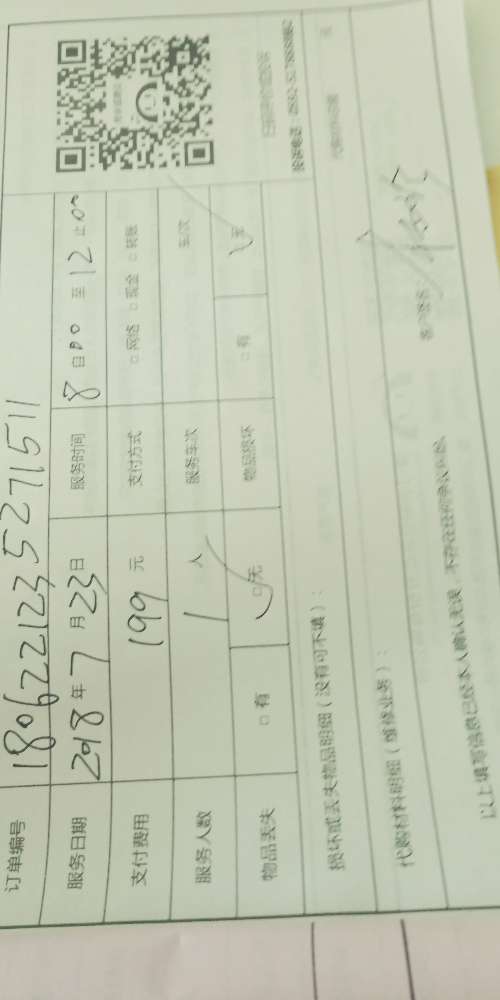 订单编号 1806221235271511
服务日期 2018 年 7 月 23 日 服务时间 8 自 00 至 12 止 00
支付费用 199 元 支付方式 □ 网络 □ 现金 □ 转账
服务人数 1 人 服务车次 车/次
物品丢失 □ 有 □ 无 物品损坏 □ 有 □ 无
损坏或丢失物品明细（没有可不填）：
代购材料明细（维修业务）：
以上填写信息已经本人确认无误，不存在任何争议
客户签名：